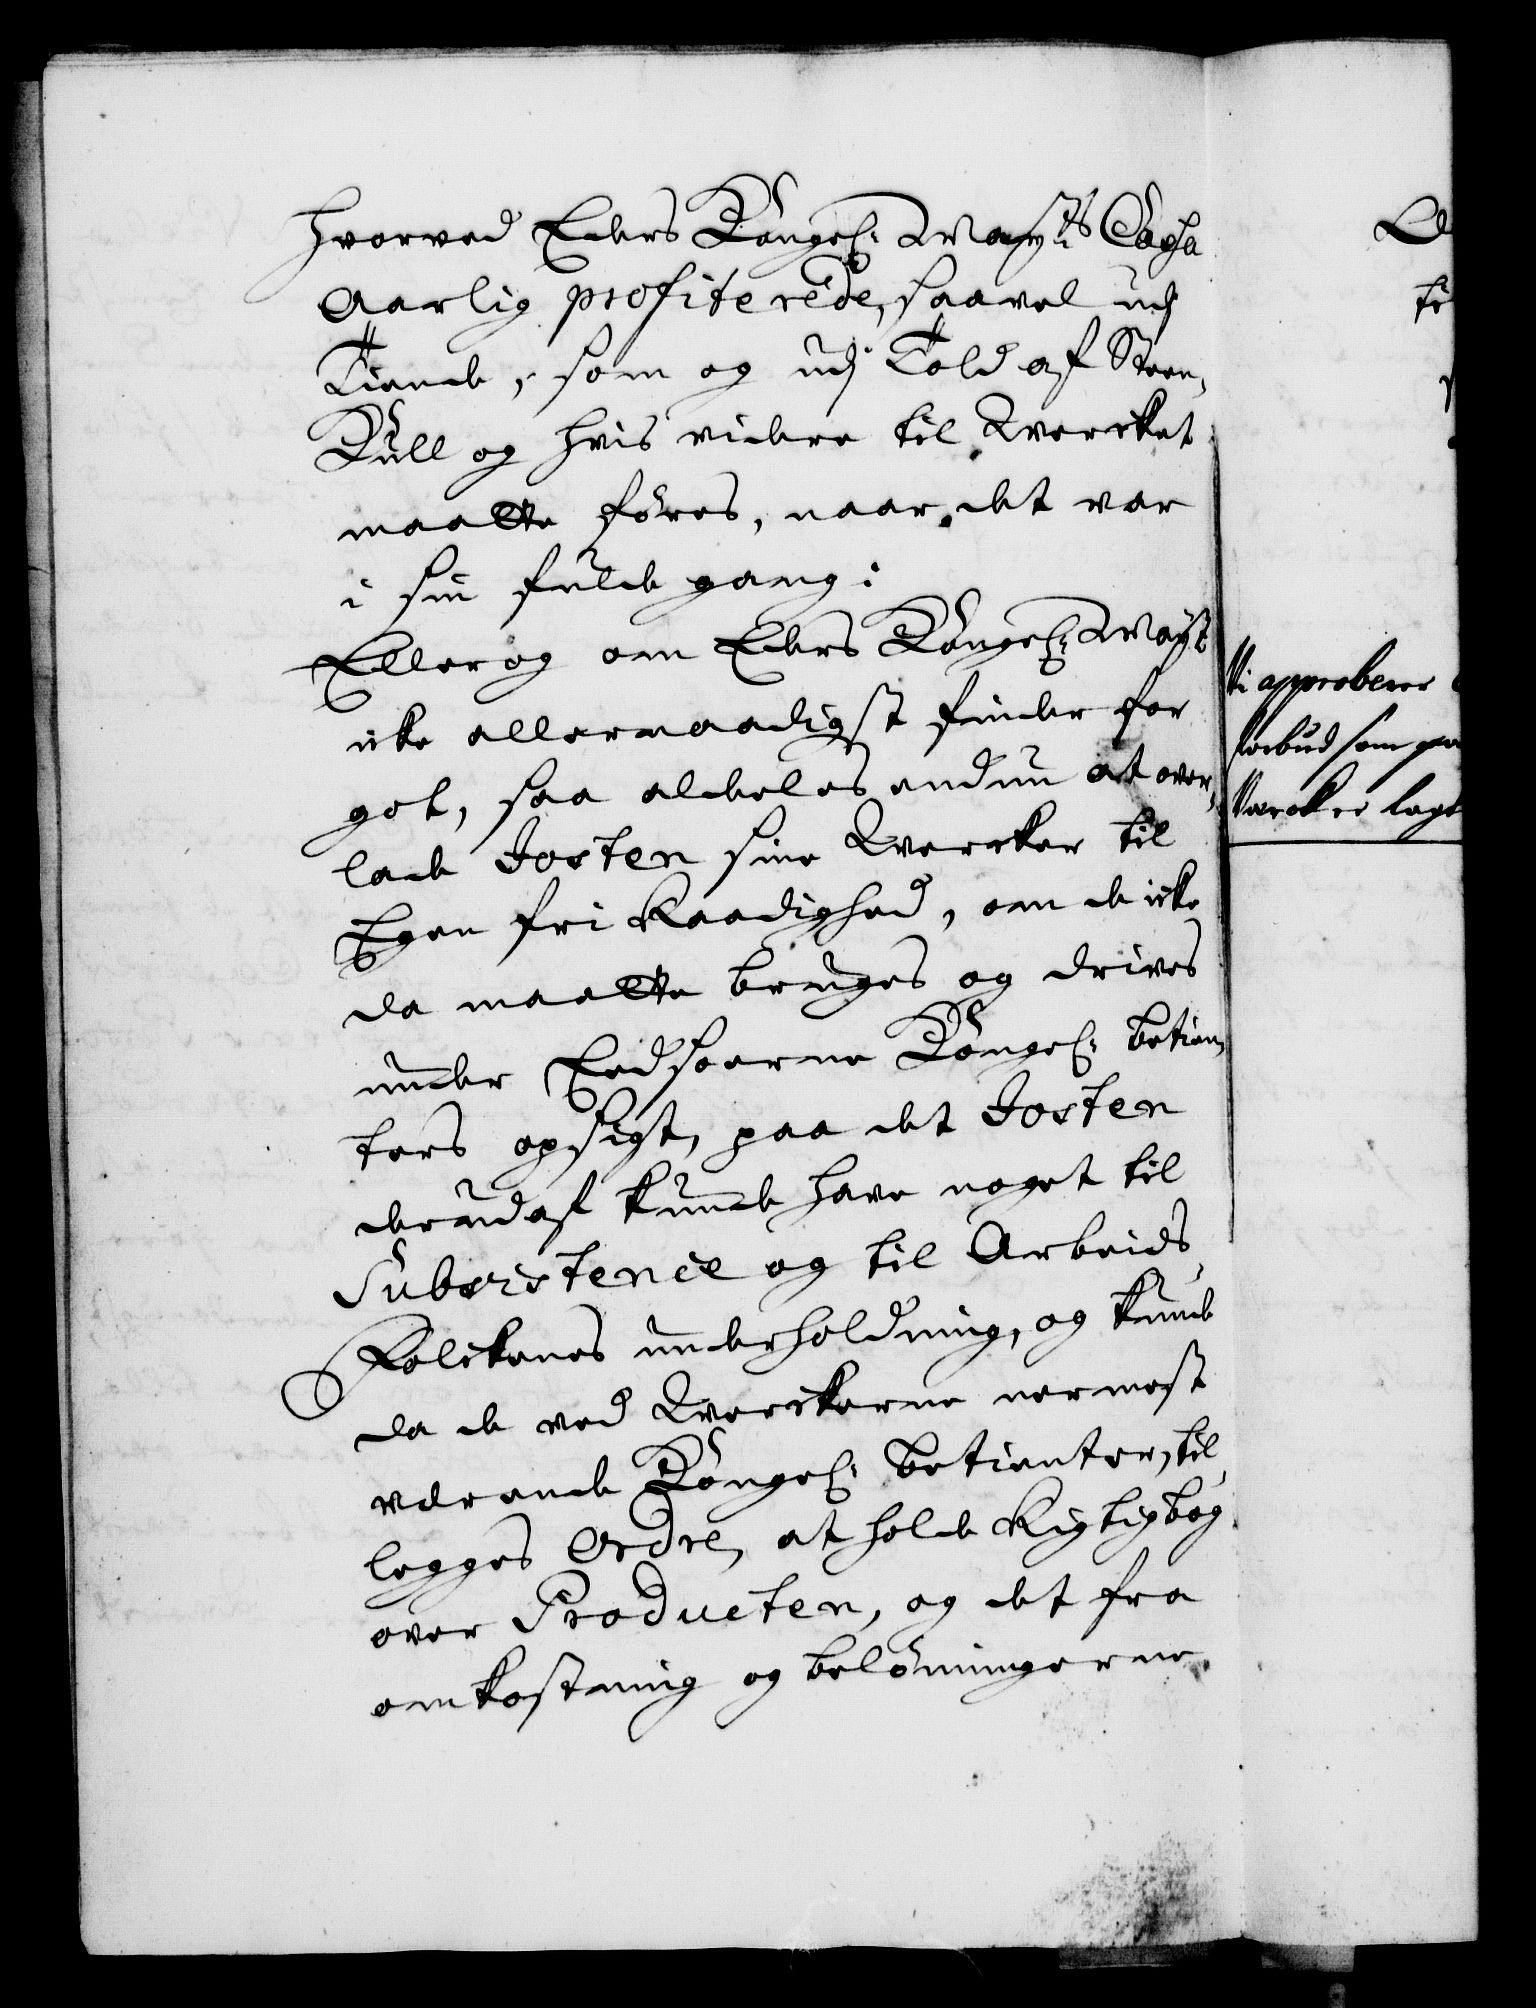 hvorved Eders Kongel: Mayts Cassa
Aarlig profiterede, saavel udj
Tiende, som og udj Told af Steen,
Kull og hvis videre til Wercket
maatte føres, naar det var
i sin fulde gang:
Eller og om Eders Kongel: Mayt
icke allernaadigst finder for
got, saa aldeles endnu at over,
lade Josten sine Wercker til
Egen fri Raadighed, om de icke
da maatte bruges og drives
under Eedsoerne Kongel: betien,
ters opsigt, paa det Josten
derudaf kunde have noget til
Subsistence og til Arbeids,
Folckenes underholdning, og kunde
da de ved Werckerne nermest
værende Kongel: betienter, til,
legges Ordre, at holde Rigtig bog
over Producten, og det fra
omkostning og belönningerne
Vi approberer
forbud som
Vercker lagt